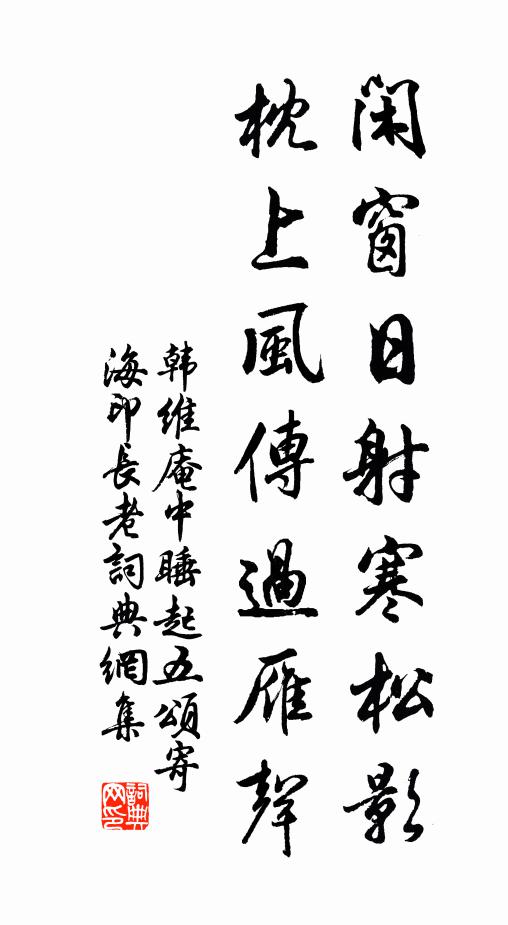 閑窗日射寒松影
枕上風傳過雁聲
韩維庵中睡起五頌寄
海印長老詞典網集
詞典网印